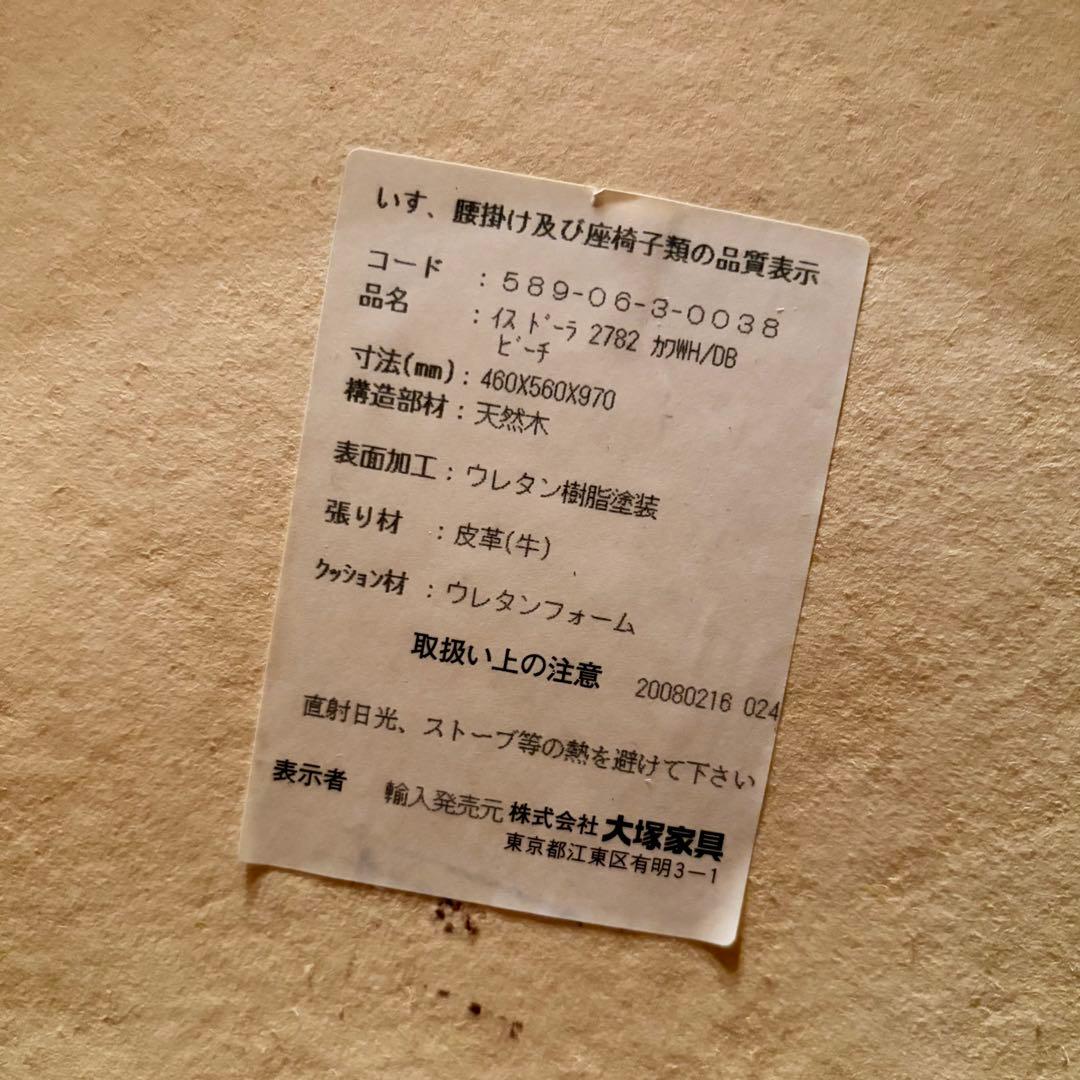 いす、腰掛け及び座椅子類の品質表示
コード : 589-06-3-0038
品名 : ｲｽ ﾄﾞｰﾗ 2782 ｶﾜWH/DB
ﾋﾞｰﾁ
寸法(mm) : 460X560X970
構造部材 : 天然木
表面加工 : ウレタン樹脂塗装
張り材 : 皮革(牛)
ｸｯｼｮﾝ材 : ウレタンフォーム
取扱い上の注意 20080216 024
直射日光、ストーブ等の熱を避けて下さい
表示者 輸入発売元 株式会社 大塚家具
東京都江東区有明3－1